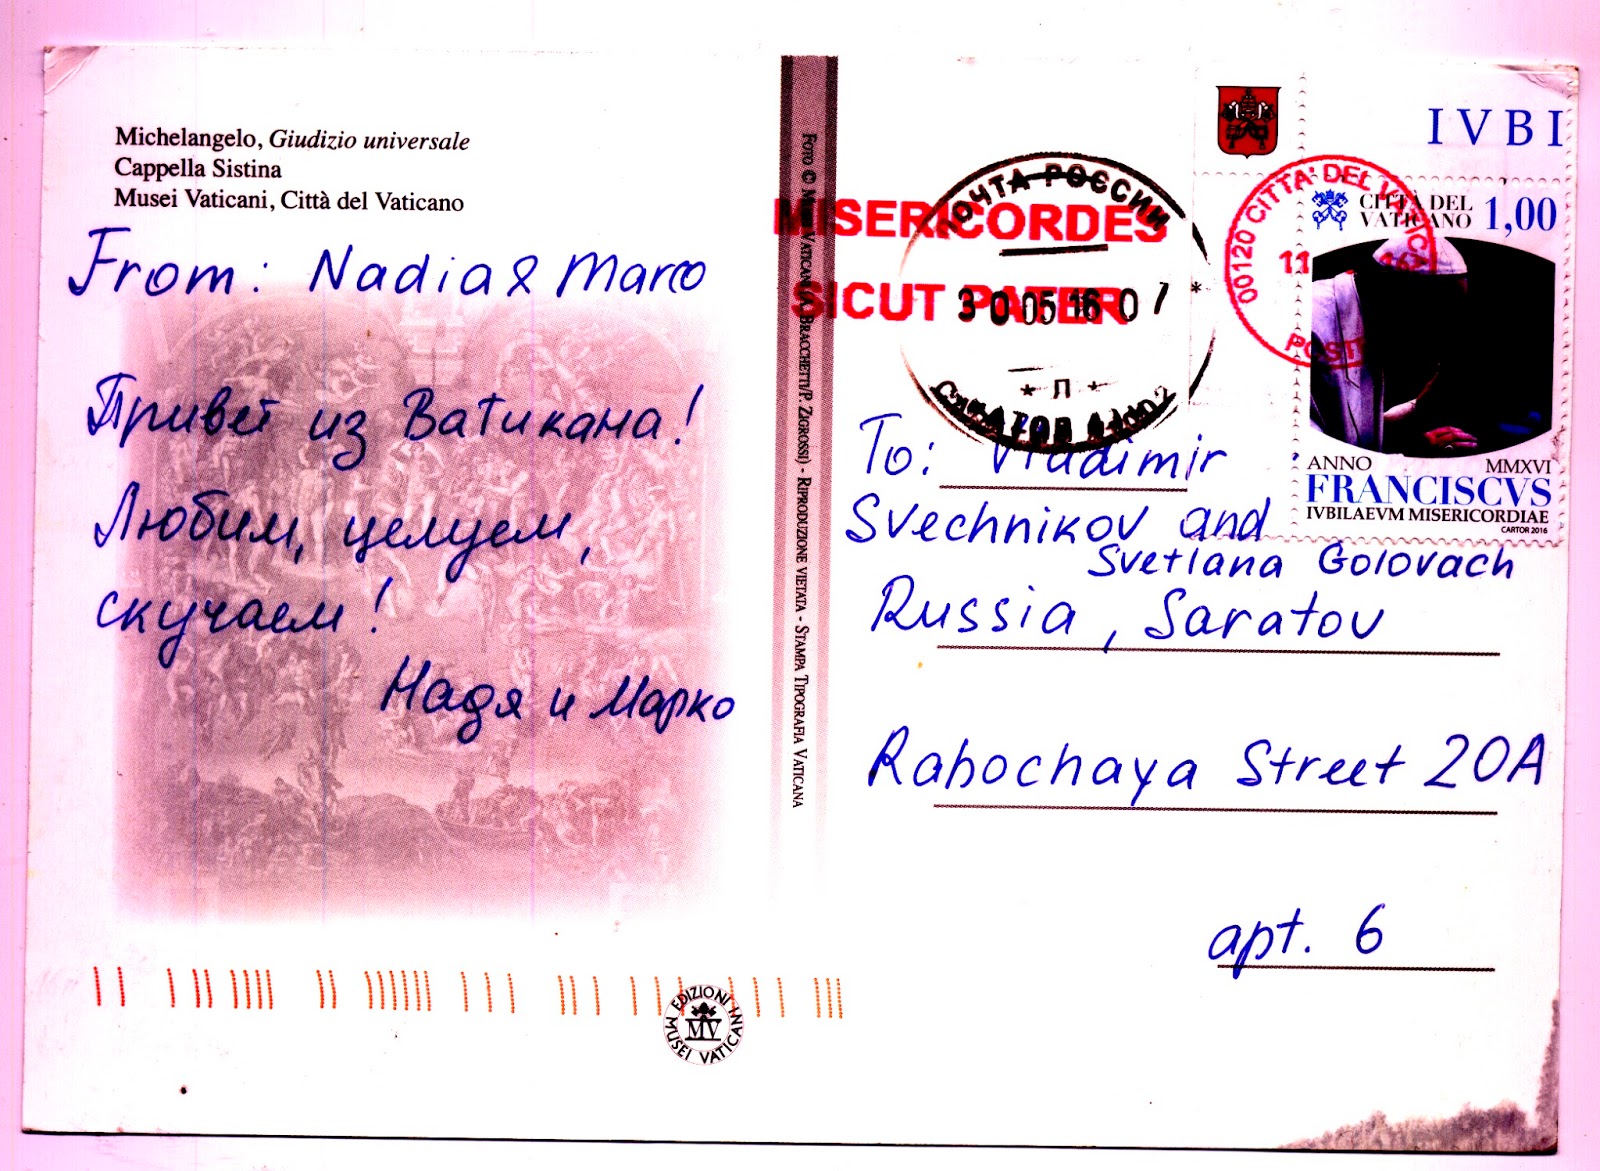 Michelangelo, Giudizio universale
Cappella Sistina
Musei Vaticani, Città del Vaticano
From: Nadia & Marco
Привет из Ватикана!
Любим, целуем,
скучаем!
Надя и Марко
EDIZIONI
MUSEI VATICANI
MV
BRACCHETTI/P. ZIGROSSI) - RIPRODUZIONE VIETATA - STAMPA TIPOGRAFIA VATICANA
MISERICORDES
SICUT PATER
ПОЧТА РОССИИ
30 05 16 07
* П *
САРАТОВ
00120 CITTA' DEL
POSTE
IVBI
CITTÀ DEL
VATICANO 1,00
ANNO MMXVI
FRANCISCVS
IVBILAEVM MISERICORDIAE
CARTOR 2016
To: Vladimir
Svechnikov and
Svetlana Golovach
Russia, Saratov
Rabochaya Street 20A
apt. 6